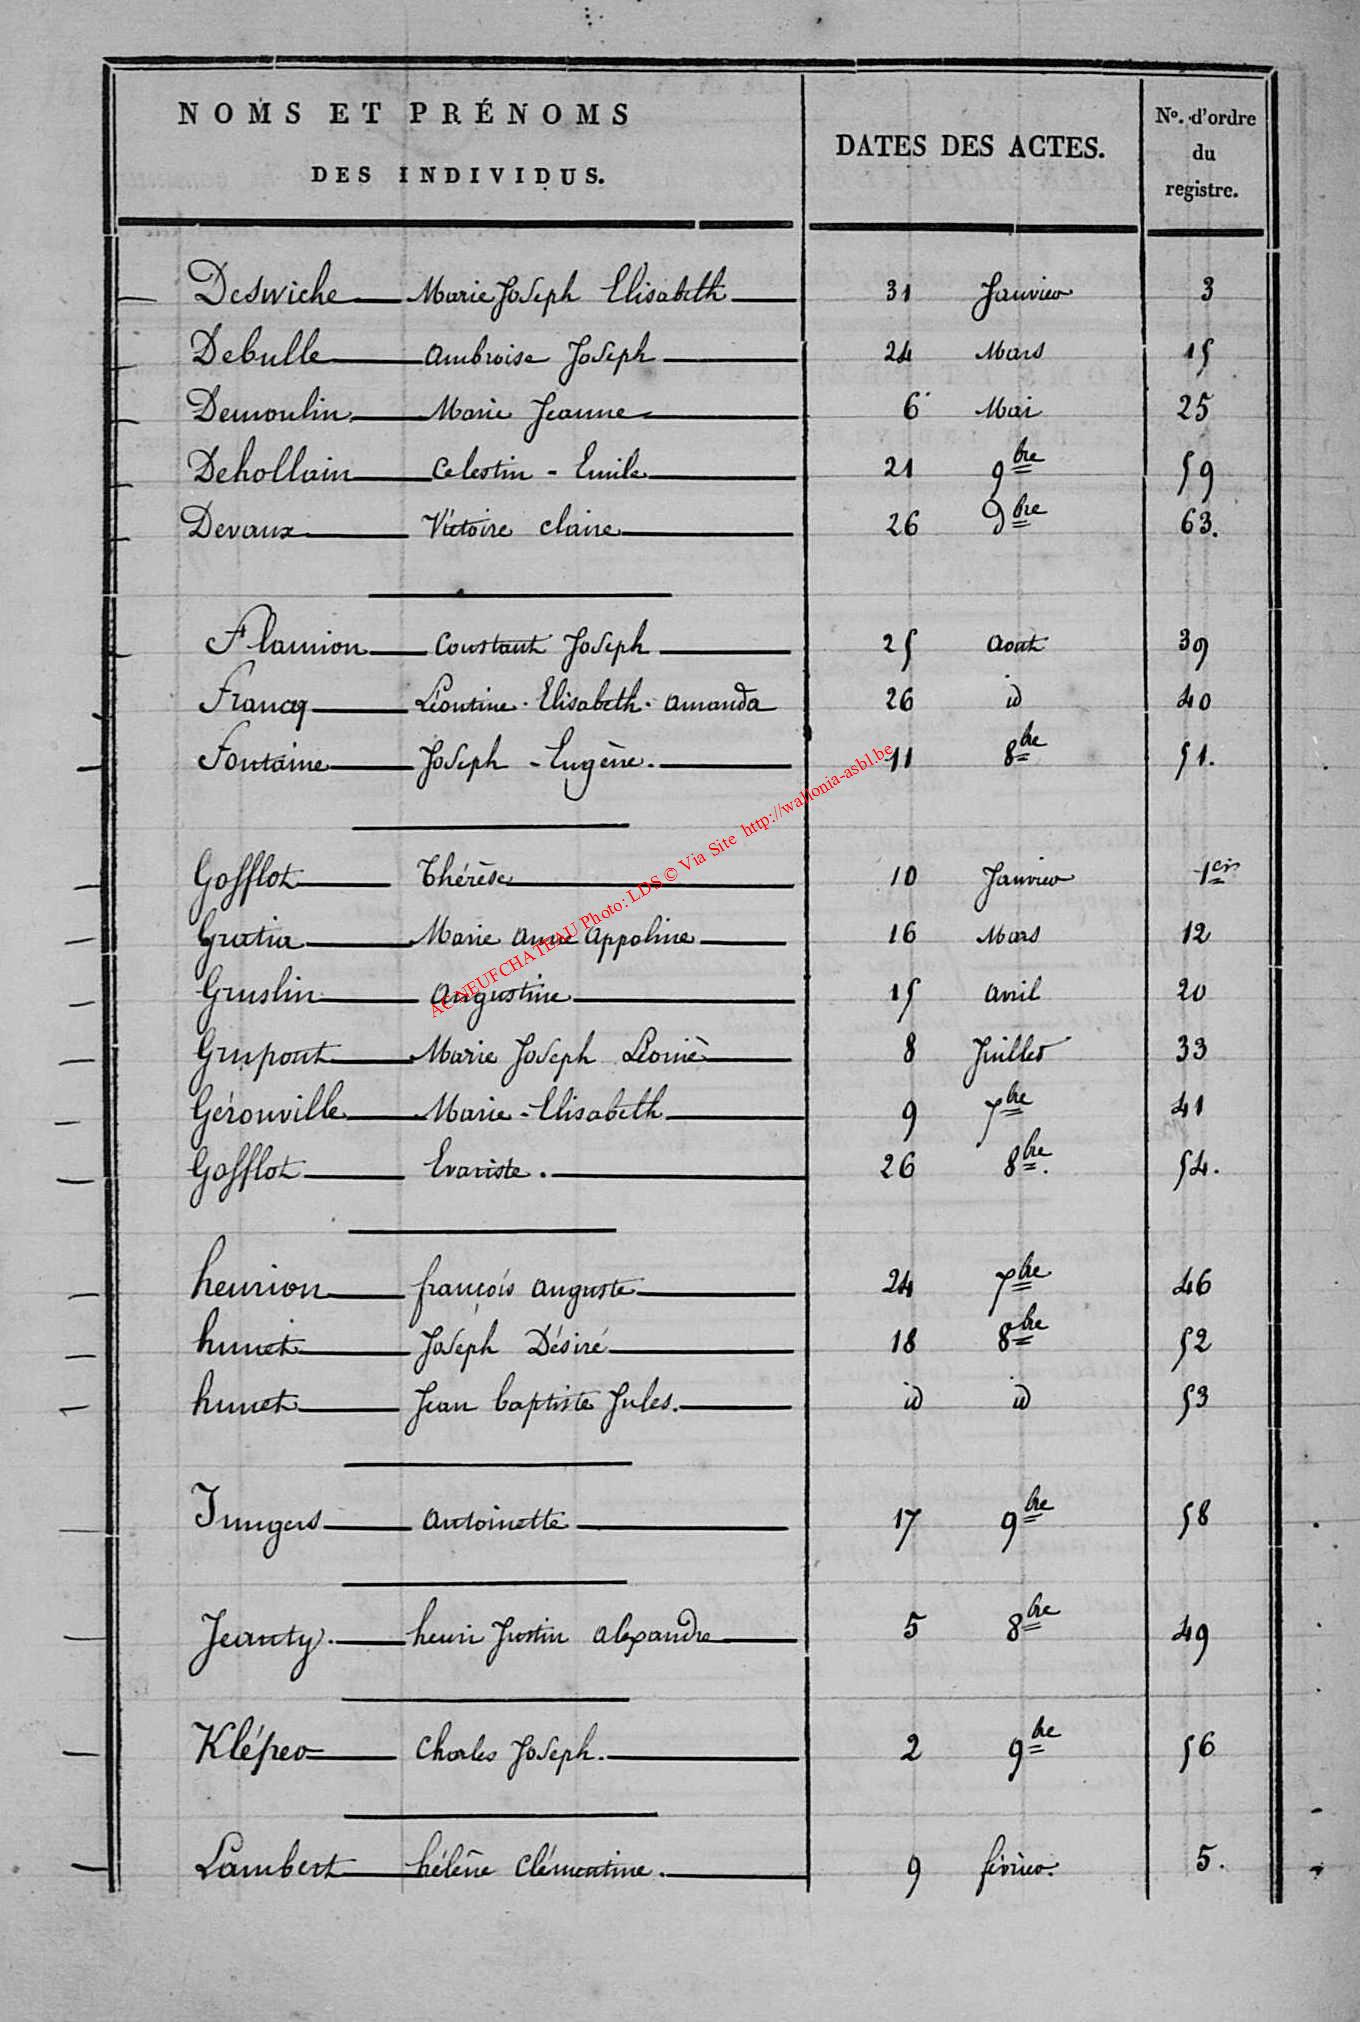 NOMS ET PRÉNOMS
DES INDIVIDUS.
DATES DES ACTES.
No. d'ordre
du
registre.
Deswiche Marie Joseph Elisabeth 31 Janvier 3
Debulle Ambroise Joseph 24 Mars 15
Demoulin Marie Jeanne 6 Mai 25
Dehollain Celestin - Emile 21 9bre 59
Devaux Victoire Claire 26 9bre 63.
Flamion Constant Joseph 25 Aout 39
Francq Léontine. Elisabeth. Amanda 26 id 40
Fontaine Joseph - Eugène. 11 8bre 51.
Gofflot Thérèse 10 Janvier 1er
Gratia Marie Anne Appoline 16 Mars 12
Gruslin Augustine 15 Avril 20
Grupont Marie Joseph Léonie 8 Juillet 33
Gérouville Marie - Elisabeth 9 7bre 41
Gofflot Evariste. 26 8bre. 54.
henrion françois Auguste 24 7bre 46
hunet Joseph Désiré 18 8bre 52
hunet Jean baptiste Jules. id id 53
Jungers Antoinette 17 9bre 58
Jeanty. henri Justin Alexandre 5 8bre 49
Klépper Charles Joseph. 2 9bre 56
Lambert hélène Clémentine. 9 février. 5.
AC NEUFCHATEAU Photo: LDS © Via Site http://wallonia-asbl.be